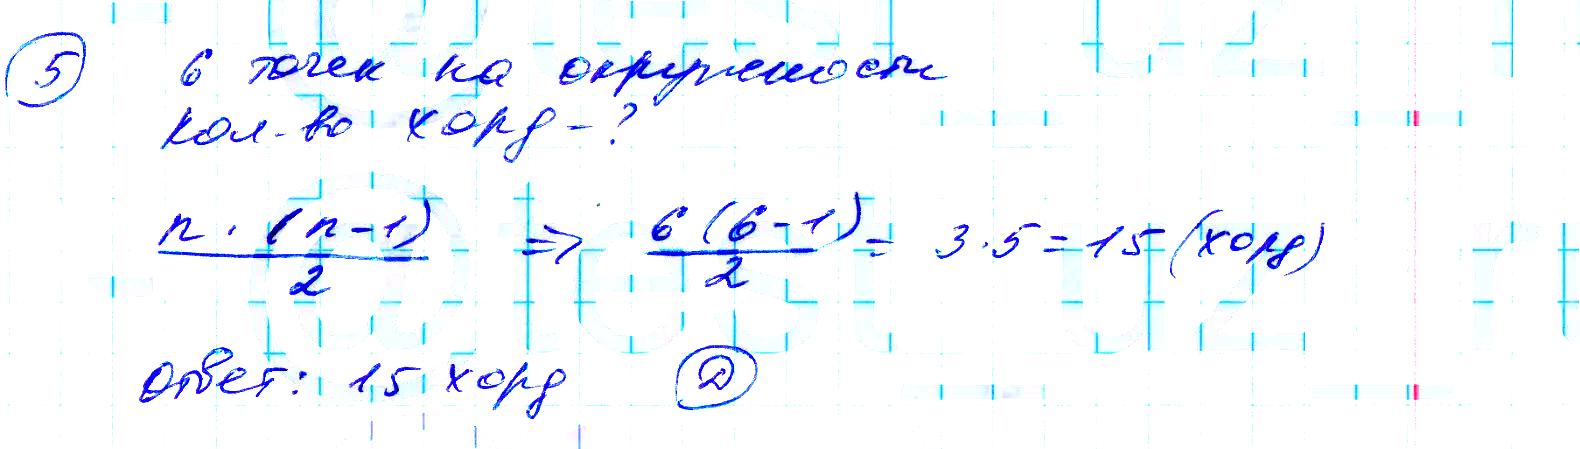 5 6 точек на окружности
кол-во хорд - ?
n · (n-1) / 2 => 6(6-1) / 2 = 3·5 = 15 (хорд)
Ответ: 15 хорд Д